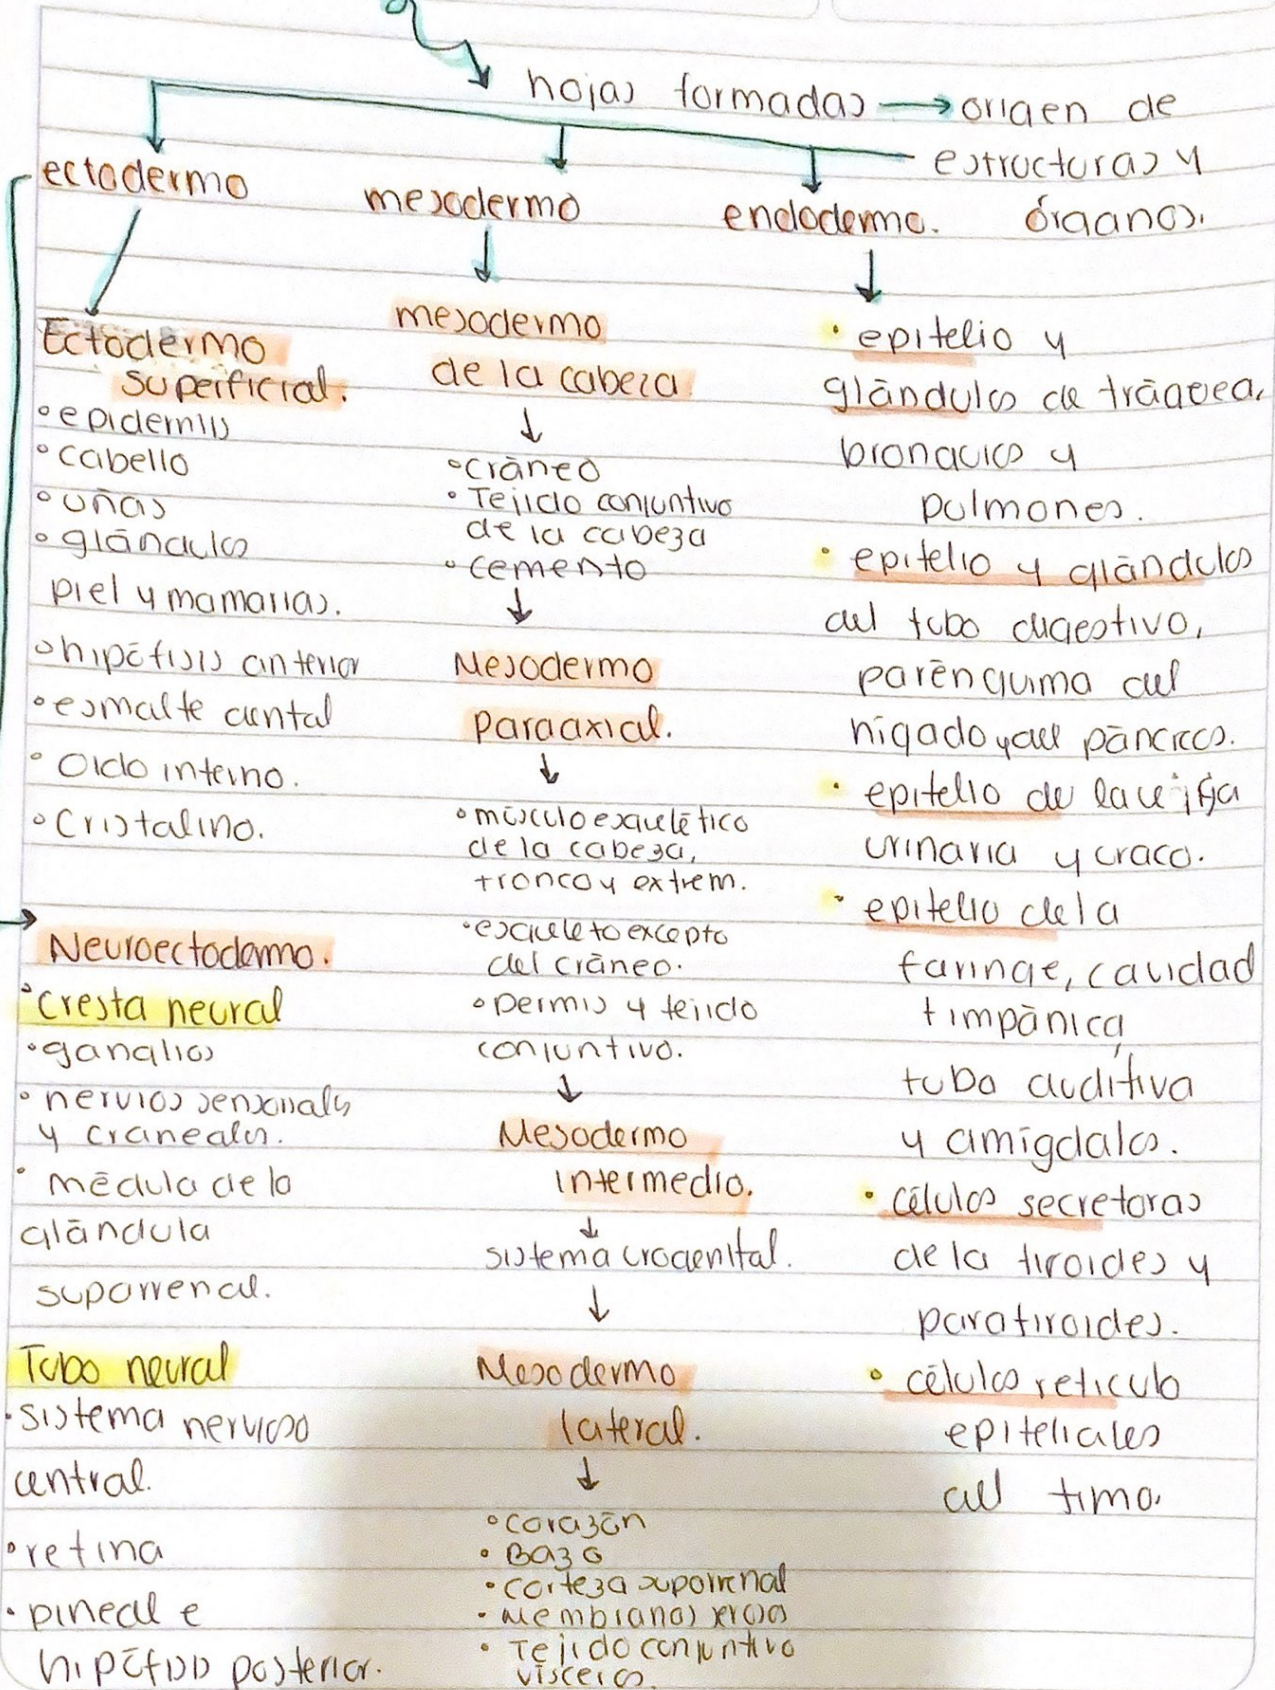 hojas formadas → origen de
estructuras y
órganos.
ectodermo
mesodermo
endodermo.
Ectodermo
superficial.
• epidermis
• cabello
• uñas
• glándulas
piel y mamarias.
• hipófisis anterior
• esmalte dental
• Oido interno.
• Cristalino.
Neuroectodermo.
• Cresta neural
• ganglios
• nervios sensoriales
y craneales.
• médula de la
glándula
suparrenal.
Tubo neural
• sistema nervioso
central.
• retina
• pineal e
hipófisis posterior.
mesodermo
de la cabeza
• cráneo
• Tejido conjuntivo
de la cabeza
• cemento
Mesodermo
paraaxial.
• músculo esquelético
de la cabeza,
tronco y extrem.
• esqueleto excepto
del cráneo.
• Dermis y tejido
conjuntivo.
Mesodermo
intermedio.
sistema urogenital.
Mesodermo
lateral.
• corazón
• Bazo
• corteza suporrenal
• Membranas serosas
• Tejido conjuntivo
visceras.
• epitelio y
glándulas de tráquea,
bronquios y
pulmones.
• epitelio y glándulas
del tubo digestivo,
parénquima del
hígado y del páncreas.
• epitelio de la vejiga
urinaria y uraco.
• epitelio de la
faringe, cavidad
timpánica,
tubo auditiva
y amígdalas.
• células secretoras
de la tiroides y
paratiroides.
• células retículo
epiteliales
del timo.